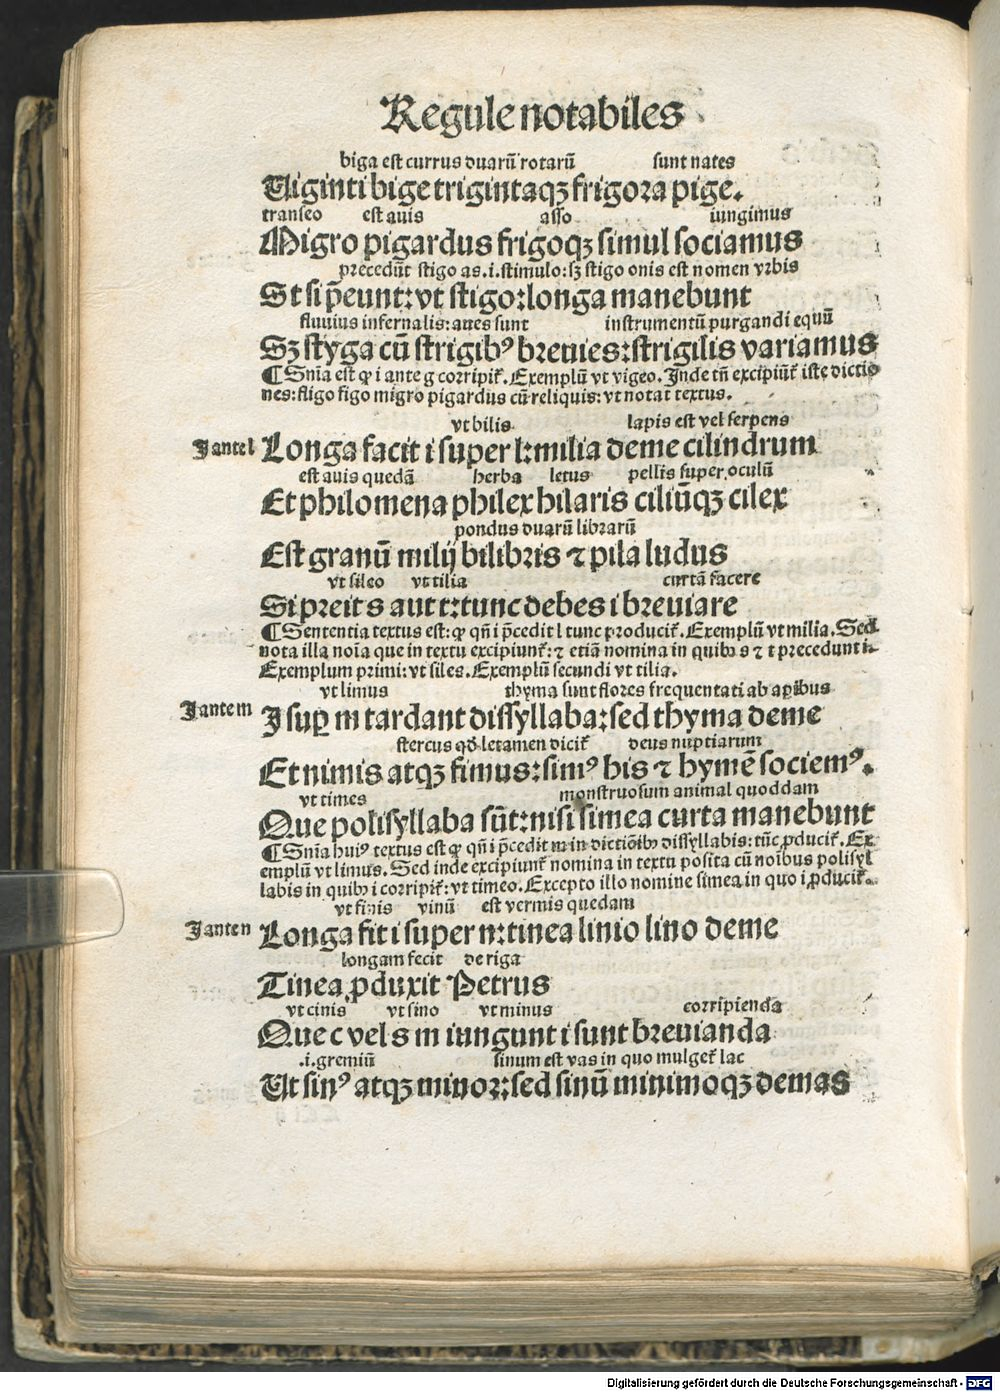 Regule notabiles
biga est currus duarū rotarū sunt nates
Uiginti bige trigintaqꝫ frigora pige.
transeo est auis asso iungimus
Migro pigardus frigoqꝫ simul sociamus
precedūt stigo as .i. stimulo: sꝫ stigo onis est nomen vrbis
St si p̄eunt: vt stigo: longa manebunt
fluuius infernalis: aues sunt instrumentū purgandi equū
Sꝫ styga cū strigibꝰ breuies: strigilis variamus
¶ Snīa est ꝙ i ante g corripit᷑. Exemplū vt vigeo. Inde tn̄ excipiūt᷑ iste dictio
nes: fligo figo migro pigardus cū reliquis: vt notat textus.
vt bilis lapis est vel serpens
I ante l Longa facit i super l: milia deme cilindrum
est auis quedā herba letus pellis super oculū
Et philomena philex hilaris ciliūqꝫ cilex
pondus duarū librarū
Est granū milij bilibris ⁊ pila ludus
vt sileo vt tilia curtā facere
Si preit s aut t: tunc debes i breuiare
¶ Sententia textus est: ꝙ qn̄ i p̄cedit l tunc producit᷑. Exemplū vt milia. Sed
nota illa noīa que in textu excipiunt᷑: ⁊ etiā nomina in quibꝫ s ⁊ t precedunt i.
Exemplum primi: vt siles. Exemplū secundi vt tilia.
vt limus thyma sunt flores frequentati ab apibus
I ante m I suꝑ m tardant dissyllaba: sed thyma deme
stercus qd̄ letamen dicit᷑ deus nuptiarum
Et nimis atqꝫ fimus: simꝰ his ⁊ hymē sociemꝰ.
vt times monstruosum animal quoddam
Que polisyllaba sūt: nisi simea curta manebunt
¶ Snīa huiꝰ textus est ꝙ qn̄ i p̄cedit m in dictiōibꝫ dissyllabis: tūc ꝓducit᷑. Ex
emplū vt limus. Sed inde excipiunt᷑ nomina in textu posita cū noībus polisyl
labis in quibꝫ i corripit᷑: vt timeo. Excepto illo nomine simea in quo i ꝓducit᷑.
vt finis vinū est vermis quedam
I ante n Longa fit i super n: tinea linio lino deme
longam fecit de riga
Tinea ꝓduxit Petrus
vt cinis vt sino vt minus corripienda
Que c vel s m iungunt i sunt breuianda
.i. gremiū sinum est vas in quo mulget᷑ lac
Ut sinꝰ atqꝫ minor: sed sinū minimoqꝫ demas
Digitalisierung gefördert durch die Deutsche Forschungsgemeinschaft - DFG